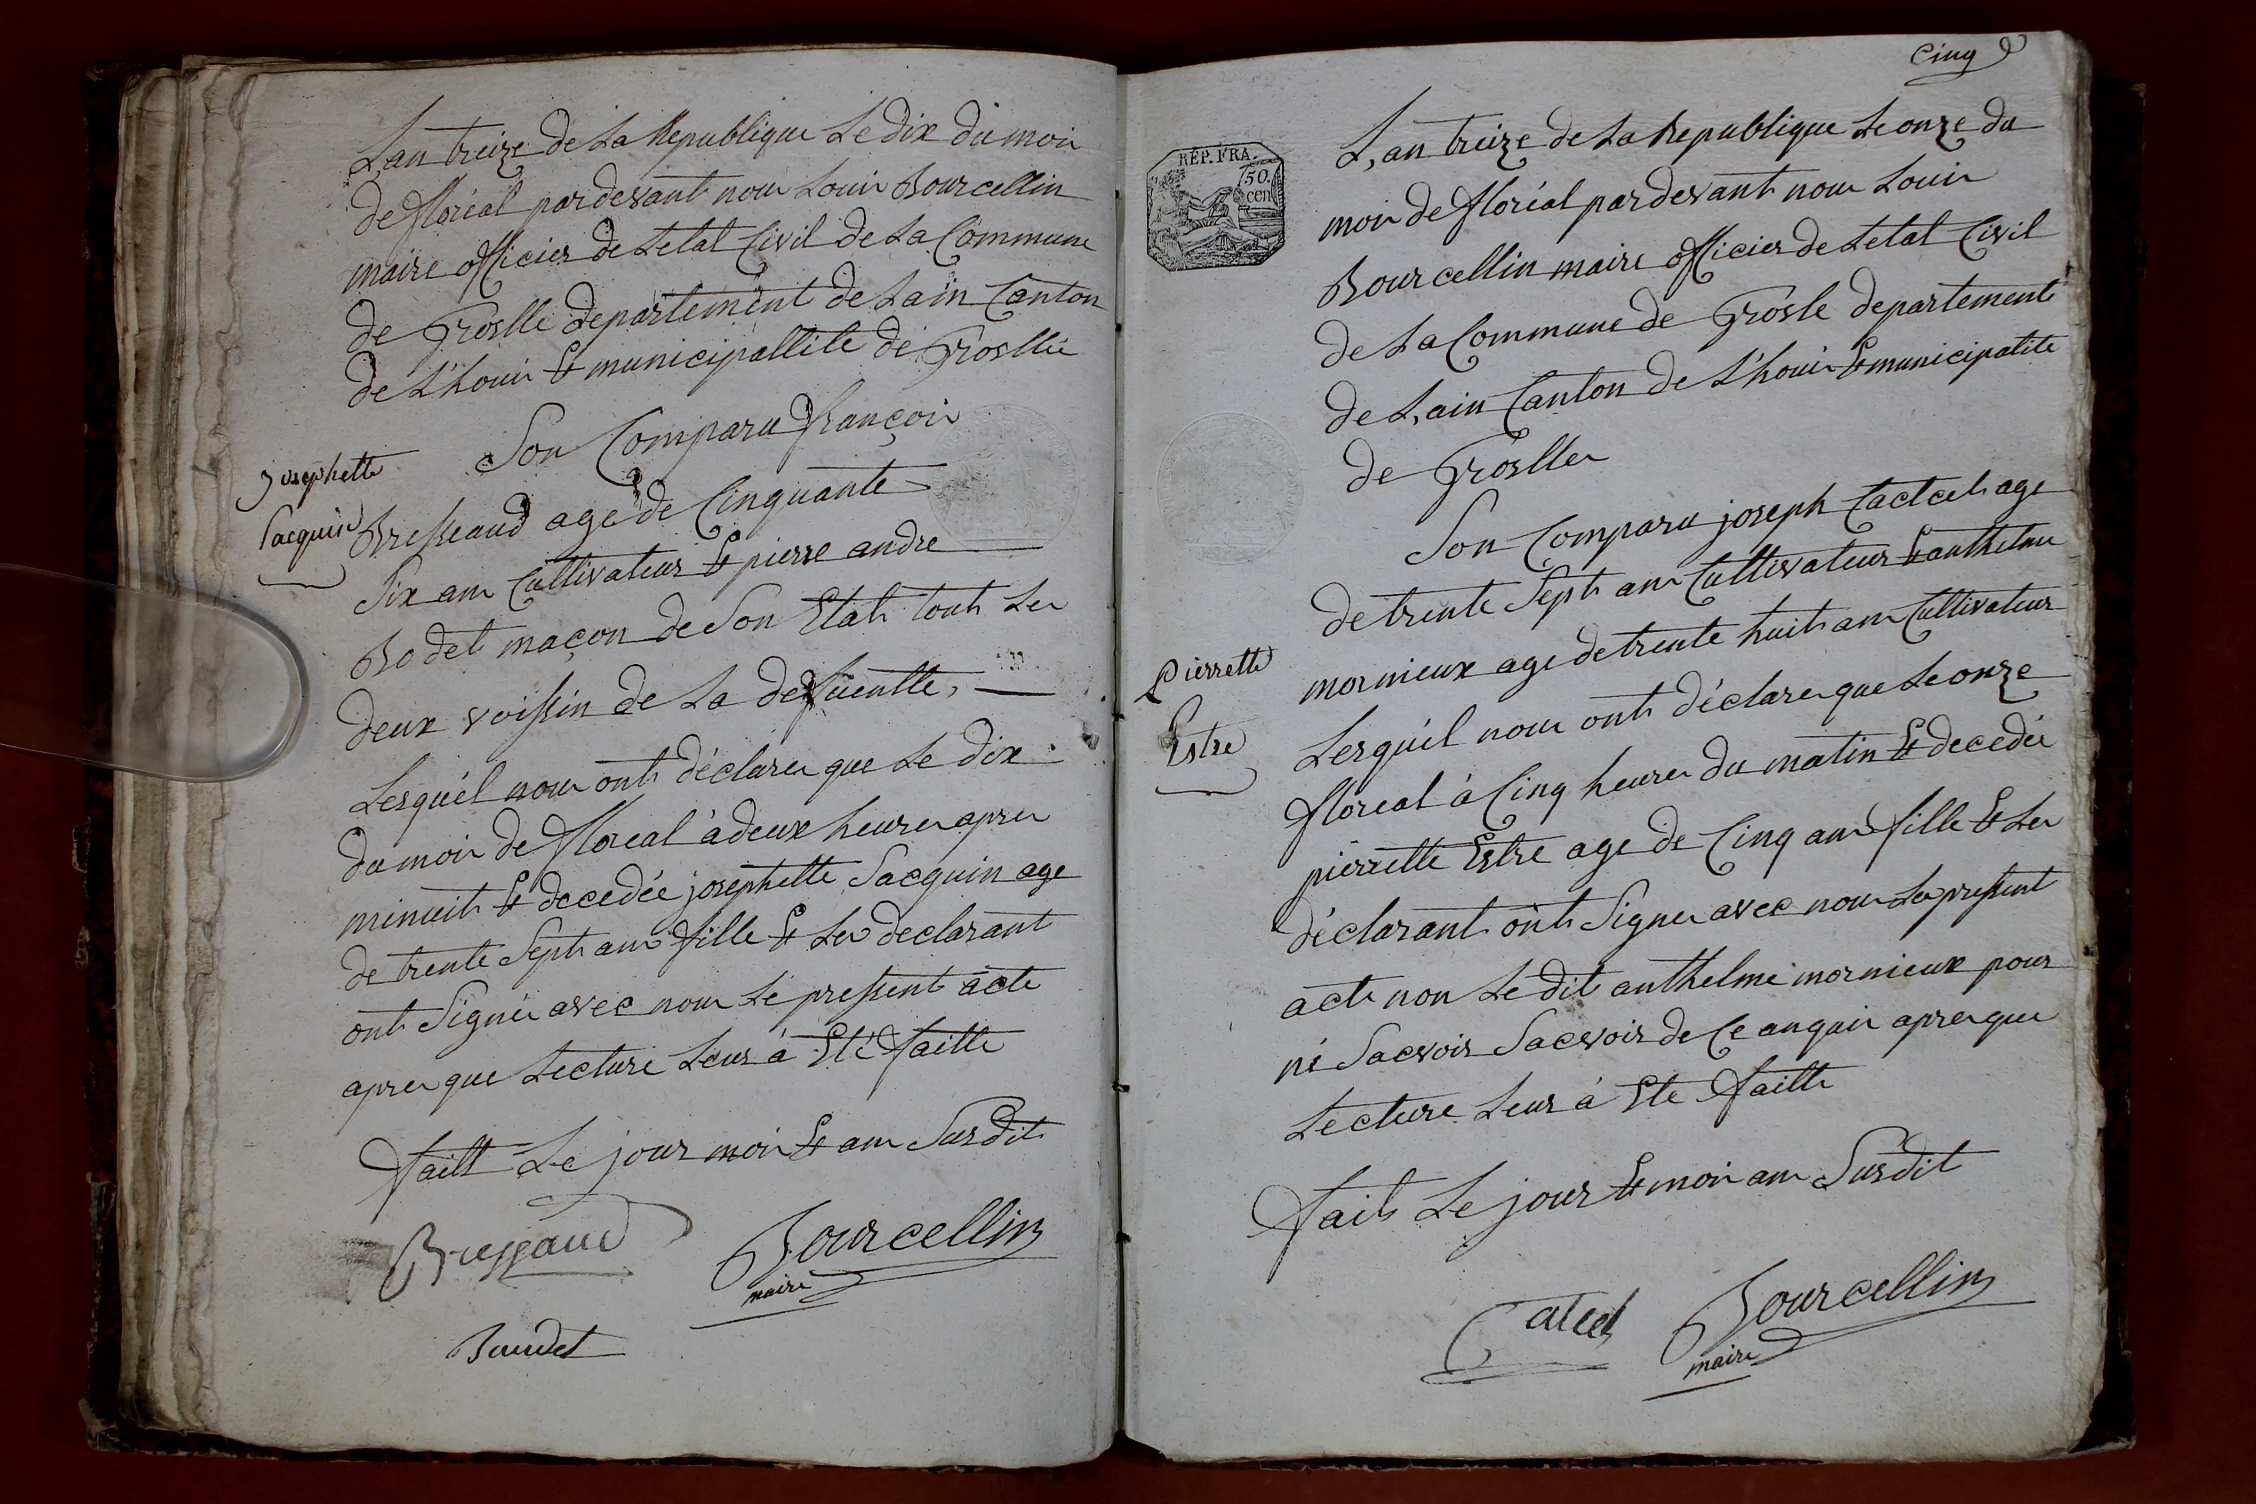 L,an treize de La Republique Le dix du mois
de floréal pardevant nous Louis Bourcellin
maire officier de Letat Civil de La Commune
de Groslle departement de Lain Canton
de L'houis Et municipallite de Grosllée
Son Comparu françois
Josephette
Jacquin
Bresseaud age de Cinquante
Six ans Cultivateur Et pierre andre
Bodet maçon de Son Etat tout Les
deux voissin de La deffuentte,
Lesquél nous ont déclarer que Le dix
du mois de floreal à deux heures apres
minuit Et decedée josephette Jacquin age
de trente Sept ans fille Et Les declarant
ont Signér avec nous Le pressent acte
apres que Lecture Leur à Eté faitte
faitt Le jour mois Et ans Surdit
Bressaud
Bourcellin
maire
Baudet
Cinq
RÉP. FRA.
50.
cen
L,an treize de La Republique Le onze du
mois de floréal pardevant nous Louis
Bourcellin maire officier de Letat Civil
de La Commune de Grosle departement
de L,ain Canton de L'houis Et municipalite
de Groslle
Son Comparu joseph Catcet age
de trente Sept ans Cultivateur Et anthelme
mornieux age de trente huit ans Cultivateur
Pierrette
Estre
Lesquél nous ont déclarer que Le onze
floreal à Cinq heures du matin Et decedée
pierrette Estre age de Cinq ans fille Et Les
déclarant ont Signer avec nous Le pressent
acte non Le dit anthelme mornieux pour
né Sacvoir Sacvoir de Ce anquis apres que
Lecture Leur à Eté faitte
fait Le jour Et mois ans Surdit
Catcet
Bourcellin
maire